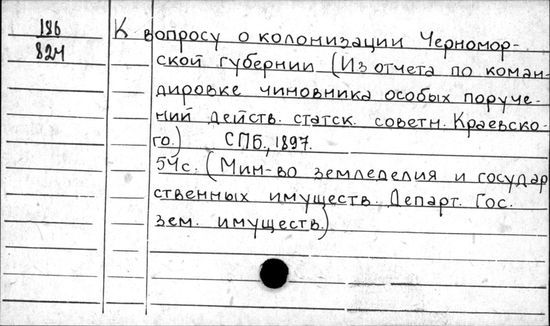 186
824
К вопросу о колонизации Черномор-
ской губернии (Из отчета по коман-
дировке чиновника особых поруче-
ний действ. статск. советн. Краевско-
го.) СПБ, 1897.
54с. (Мин-во земледелия и государ
ственных имуществ. Департ. Гос.
зем. имуществ.)